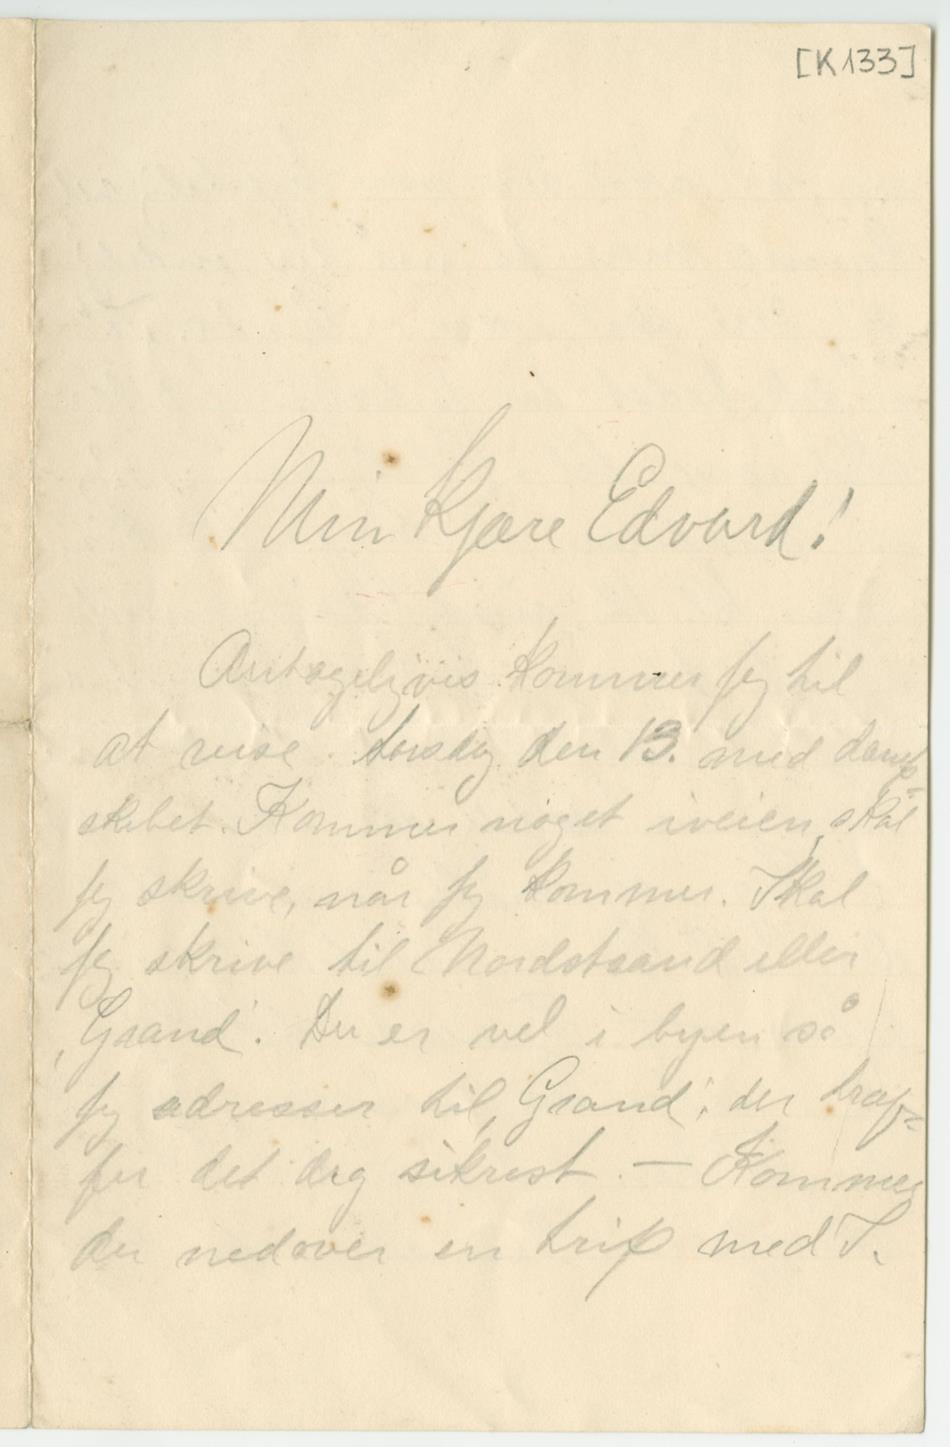 [K133]
Min Kjære Edvard!
Antageligvis kommer jeg til
at reise torsdag den 13. med damp=
skibet. Kommer noget iveien, skal
jeg skrive, når jeg kommer. Skal
jeg skrive til Nordstrand eller
„Grand". Du er vel i byen så
jeg adresser til „Grand", der træf=
fer det dig sikrest. — Kommer
du nedover en trip med S.